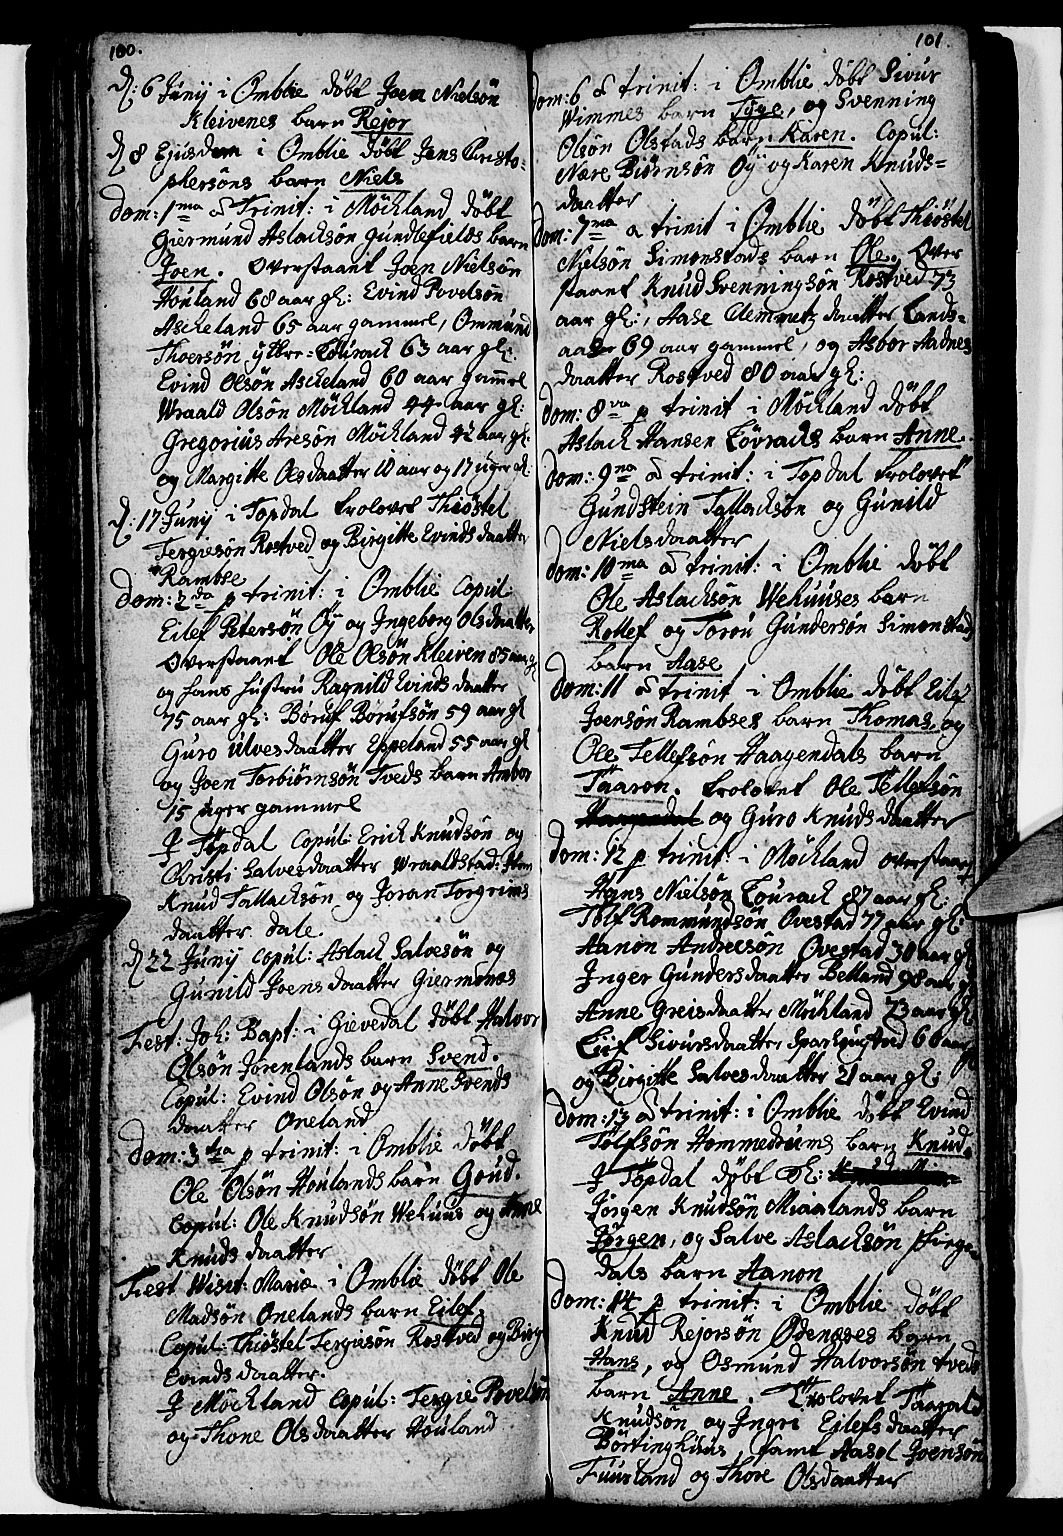 100.
d: 6 Junij i Omblie döbt Joen Nielsön
Kleivenes barn Rejor
d 8 Ejusdem i Omblie döbt Jens Christo-
phersöns barn Niels
Dom: 1ma a Trinit: i Möckland döbt
Giermund Aslacksön Gundlefields barn
Joen. Overstaaet Joen Nielsön
Houland 68 aar gl: Evind Povelsön
Ascheland 65 aar gammel, Ommund
Thoersön ytbre-Löurack 63 aar gl:
Evind Olsön Ascheland 60 aar gammel
Wraald Olsön Möckland 44 aar gl:
Gregorius Aresön Möckland 42 aar gl:
og Margitte Olsdaatter 10 aar og 17 uger gl:
d: 17 Junij i Topdal trolovet Thiöstel
Tergiesön Rostved og Birgitte Evindsdaatter
Rambse
Dom: 2da p trinit: i Omblie Copul:
Eilef Petersön Oÿ og Ingeborg Olsdaatter
overstaaet Ole Olsön Kleiven 85 aar gl
og hans hustru Ragnild Evindsdaatter
75 aar gl: Böruf Börufsön 59 aar gl
Guro Ulvesdaatter Eppeland 55 aar gl
og Joen Torbiörnsön Tveds barn Ambor
15 uger gammel
J Topdal Copul: Erick Knudsön og
Christi Salvesdaatter Wraaldstad: Item
Knud Tallacksön og Joran Torgrims
daatter Dale.
d 22 Junij Copul: Aslack Salvesön og
Gunild Joensdaatter Giermones
Fest: Joh: Bapt: i Gievedal döbt Halvor
Olsön Jorenlands barn Svend.
Copul: Evind Olsön og Anne Svends
daatter Oneland
Dom: 3tia p trinit: i Omblie döbt
Ole Olsön Houlands barn Goud.
Copul: Ole Knudsön Wehuus og Anne
Knudsdaatter
Fest Wisit: Mariæ i Omblie döbt Ole
Madsön Onelands barn Eilef.
Copul: Thiöstel Tergiesön Rostved og Birg:
Evindsdaatter.
J Möckland Copul: Tergie Povelsön
og Thone Olsdaatter Houland
101.
Dom: 6 a trinit: i Omblie döbt Sivur
Wimmes barn Tyge, og Svenning
Olsön Olstads barn Karen. Copul:
Nære Biörnsön Oÿ og Karen Knuds-
daatter
Dom: 7ma a trinit i Omblie döbt Thiöstel
Nielsön Simonstads barn Ole. Over
staaet Knud Svenningsön Rostved 73
aar gl:, Aase Clemmetzdaatter Lands-
aaser 69 aar gammel, og Asbor Aadnes
daatter Rostved 80 aar gl:
Dom: 8va p trinit i Möckland döbt
Aslack Hansen Lövracks barn Anne.
Dom: 9na a trinit: i Topdal trolovet
Gundstein Tallacksön og Gunild
Nielsdaatter
Dom: 10ma a trinit: i Omblie döbt
Ole Aslacksön Wehuuses barn
Rollef og Torou Gundersön Simonstads
barn Aase
Dom: 11 a trinit i Omblie döbt Eilef
Joensön Rambses barn Thomas, og
Ole Tellefsön Haagendals barn
Taaron. trolovet Ole Tellefsön
og Guro Knudsdaatter
Dom: 12 p trinit: i Möckland overstaaet
Hans Nielsön Lourack 87 aar gl:
Tolf Rommundsön Ovestad 77 aar gl:
Aanon Andresön Ovestad 30 aar gl
Inger Gundersdaatter Belland 98 aar gl
Anne Greisdaatter Möckland 73 aar gl
Eiif Sivursdaatter 60 aar gl
og Birgitte Salvesdaatter 21 aar gl:
Dom: 13 a trinit: i Omblie döbt Evind
Tolfsön Hommedrums barn Knud.
J Topdal döbt
Jörgen Knudsön Miaalands barn
Jörgen, og Salve Aslacksön
dals barn Aanon
Dom: 14 p trinit: i Omblie döbt
Knud Rejorsön Odenæses barn
Hans, og Osmund Halvorsön Tveds
barn Anne. Trolovet Taagald
Knudsön og Ingri Eilefsdaatter
Börtinghuus, samt Aasel Joensön
Fuurland og Thore Olsdaatter